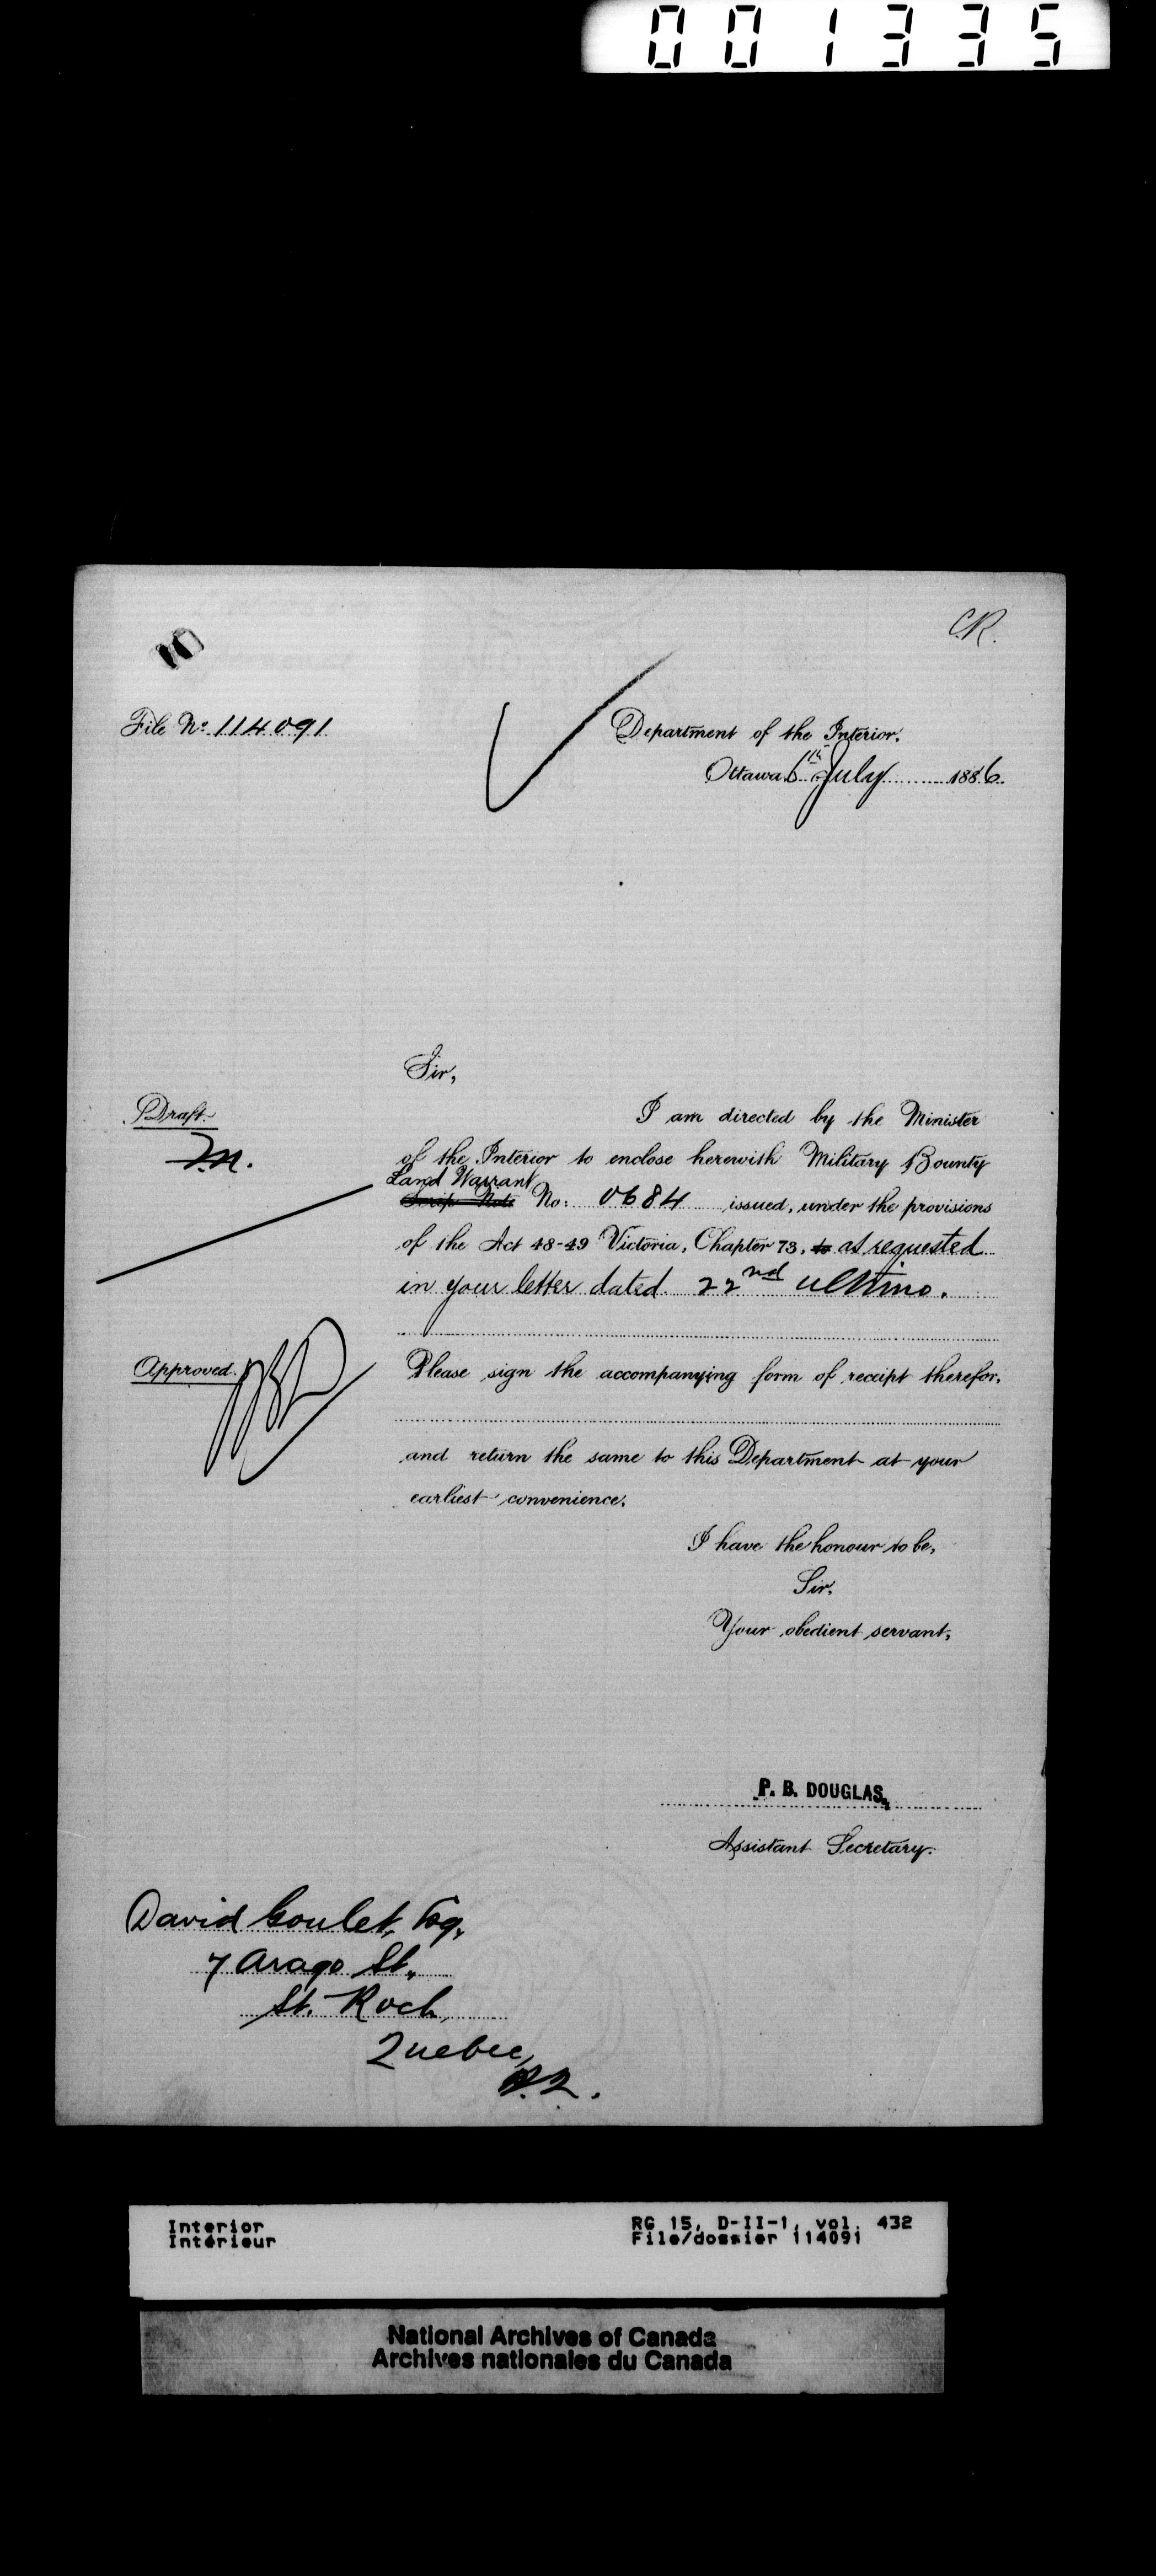 001335
C.R.
File No. 114091
Department of the Interior.
Ottawa 6th July 1886.
Sir,
Draft.
I am directed by the Minister
of the Interior to enclose herewith Military Bounty
Land Warrant
Scrip Note No: 0684 issued, under the provisions
of the Act 48-49 Victoria, Chapter 73, to as requested
in your letter dated 22nd ultimo.
Approved.
Please sign the accompanying form of receipt therefor,
and return the same to this Department at your
earliest convenience.
I have the honour to be,
Sir,
Your obedient servant,
P. B. DOUGLAS,
Assistant Secretary.
David Goulet, Esq,
7 Arago St.,
St. Roch,
Quebec,
P.Q.
Interior
Intérieur
RG 15, D-II-1, vol. 432
File/dossier 114091
National Archives of Canada
Archives nationales du Canada